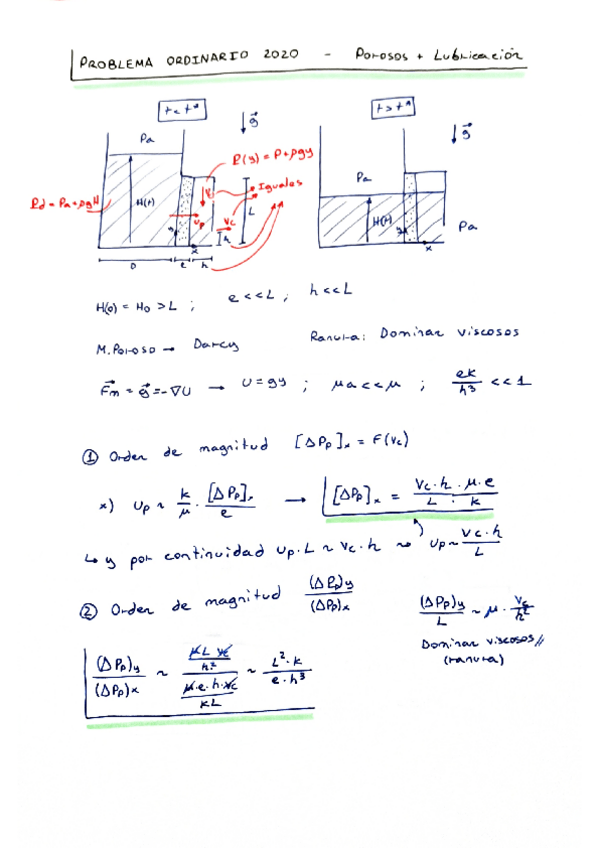 PROBLEMA ORDINARIO 2020 - Porosos + Lubricación
t < t*
t > t*
Pa
P(y) = P + ρgy
Iguales
Pd = Pa + ρgH
H(t)
up
vc
L
h
y
x
D
e
h
g
Pa
H(t)
Pa
x
g
H(0) = Ho > L ; e << L ; h << L
M. Poroso → Darcy
Ranura: Dominar viscosos
Fm = g = -∇U → U = gy ; μa << μ ; ek/h³ << 1
① Orden de magnitud [ΔPp]x = F(vc)
x) up ~ k/μ · [ΔPp]x/e → [ΔPp]x = vc · h · μ · e / L · k
↳ y por continuidad up · L ~ vc · h ~> up ~ vc · h / L
② Orden de magnitud (ΔPp)y / (ΔPp)x
(ΔPp)y / L ~ μ · vc / h²
Dominar viscosos //
(ranura)
(ΔPp)y / (ΔPp)x ~ μL vc / h² / μ·e·h·vc / kL ~ L² · k / e · h³